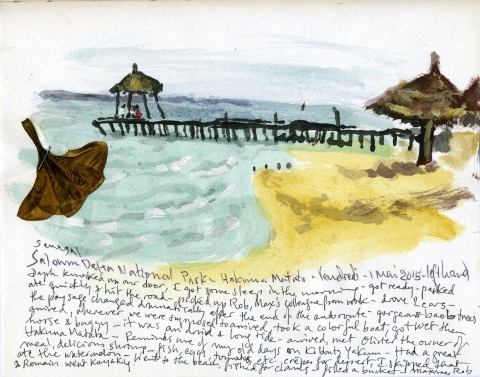 Senegal
Saloum Delta National Park - Hakuna Matata - Vendredi - 1 Mai 2015 - left hand
Steph knocked on our door, I got some sleep in the morning - got ready - packed
ate quickly & hit the road - picked up Rob, Max's colleague from work - drove 2 cars -
the paysage changed dramatically after the end of the autoroute - gorgeous baobab trees
arrived, wherever we were supposed to arrived, took a colorful boat, got wet then
horse & buggy - it was an arid & long ride - arrived, met Olivier the owner of
Hakuna Matata - Reminds me of my old days on Kibbutz Yakum - Had a great
meal, delicious shrimp - fish, eggs, tomatoes, etc, crêpes for dessert, I skipped that
ate the watermelon - Went to the beach, fished for clams - filled a bucket - Maxime, Rob
& Romain went kayaking